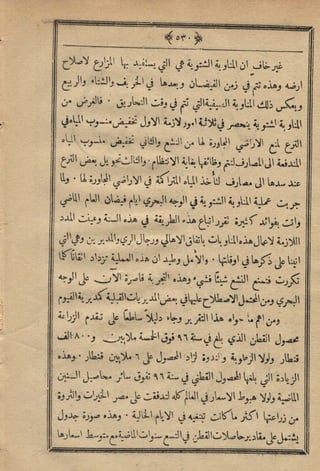 ﴿ ٥٣٠ ﴾
غير خاف ان المناوبة الشتوية هي التي يستفيد بها المزارع لاصلاح
ارضه وهذه تتم في زمن الفيضان وبعدها في الخريف والشتاء والربيع
وبعكس ذلك المناوبة الصيفية التي تتم في وقت التحاريق. فالغرض من
المناوبة الشتوية ينحصر في ثلاثة امور لازمة الاول تخفيض منسوب المياه في
الترع لمنع الاراضي المجاورة لها من النشع والثاني تخفيض منسوب المياه
المندفعة الى المصارف لتتم وظائفها بغاية الانتظام. والثالث تحويل بعض الترع
عند سدها الى مصارف لتأخذ المياه المتراكمة في الاراضي المجاورة لها. ولما
جربت عملية المناوبة الشتوية في الوجه البحري ايام فيضان العام الماضي
واتت بفوائد كثيرة تقرر اتباع هذه الطريقة في هذه السنة وعينت المدد
اللازمة لاعمال هذه المناوبات باتفاق الاهالي ورجال الري والمديرين وهي التي
اتينا على ذكرها في اوقاتها. والامل وطيد ان هذه العملية تزداد اتقانا كلما
تكررت فتمنع النشع شيئًا فشيء وهذه التجربة قاصرة الآن على الوجه
البحري ومن المحتمل الاصطلاح عليها في بعض المديريات القبلية كمديرية الفيوم
ومن اهم ما حواه هذا التقرير وجاء دليلاً ساطعًا على تقدم الزراعة
محصول القطن الذي بلغ في سنة ٩٦ فوق الخمسة ملايين و٨٠٠ الف
قنطار ولولا الرطوبة والندوة لزاد المحصول على ٦ ملايين قنطار. وهذه
الزيادة التي بلغها المحصول القطني في سنة ٩٦ تفوق سائر محاصيل السنين
الماضية ولولا هبوط الاسعار في العالم كله لتدفقت على مصر الخيرات والثروة
من زراعتها اكثر ما كانت تبتغيه في الايام الخالية. وهذه صورة جدول
يشتمل على مقادير حاصلات القطن في التسع سنوات الماضية مع متوسط اسعارها